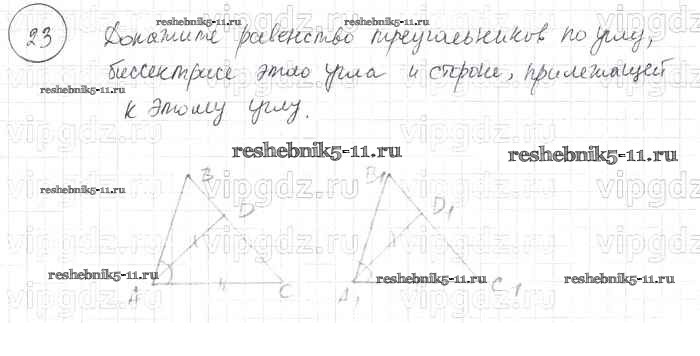 23
Докажите равенство треугольников по углу,
биссектрисе этого угла и стороне, прилежащей
к этому углу.
reshebnik5-11.ru
reshebnik5-11.ru
reshebnik5-11.ru
reshebnik5-11.ru
reshebnik5-11.ru
reshebnik5-11.ru
reshebnik5-11.ru
reshebnik5-11.ru
reshebnik5-11.ru
vipgdz.ru
vipgdz.ru
vipgdz.ru
B
D
A
C
B1
D1
A1
C1